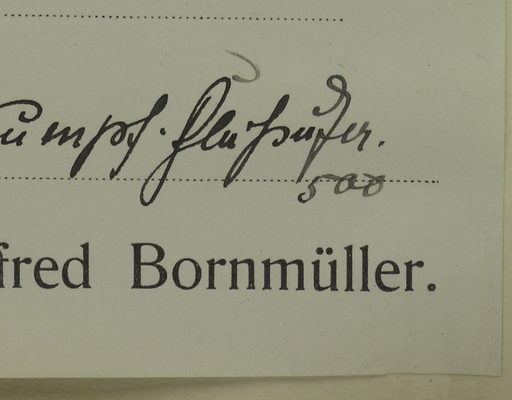 umpf. Flußufer.
500
fred Bornmüller.